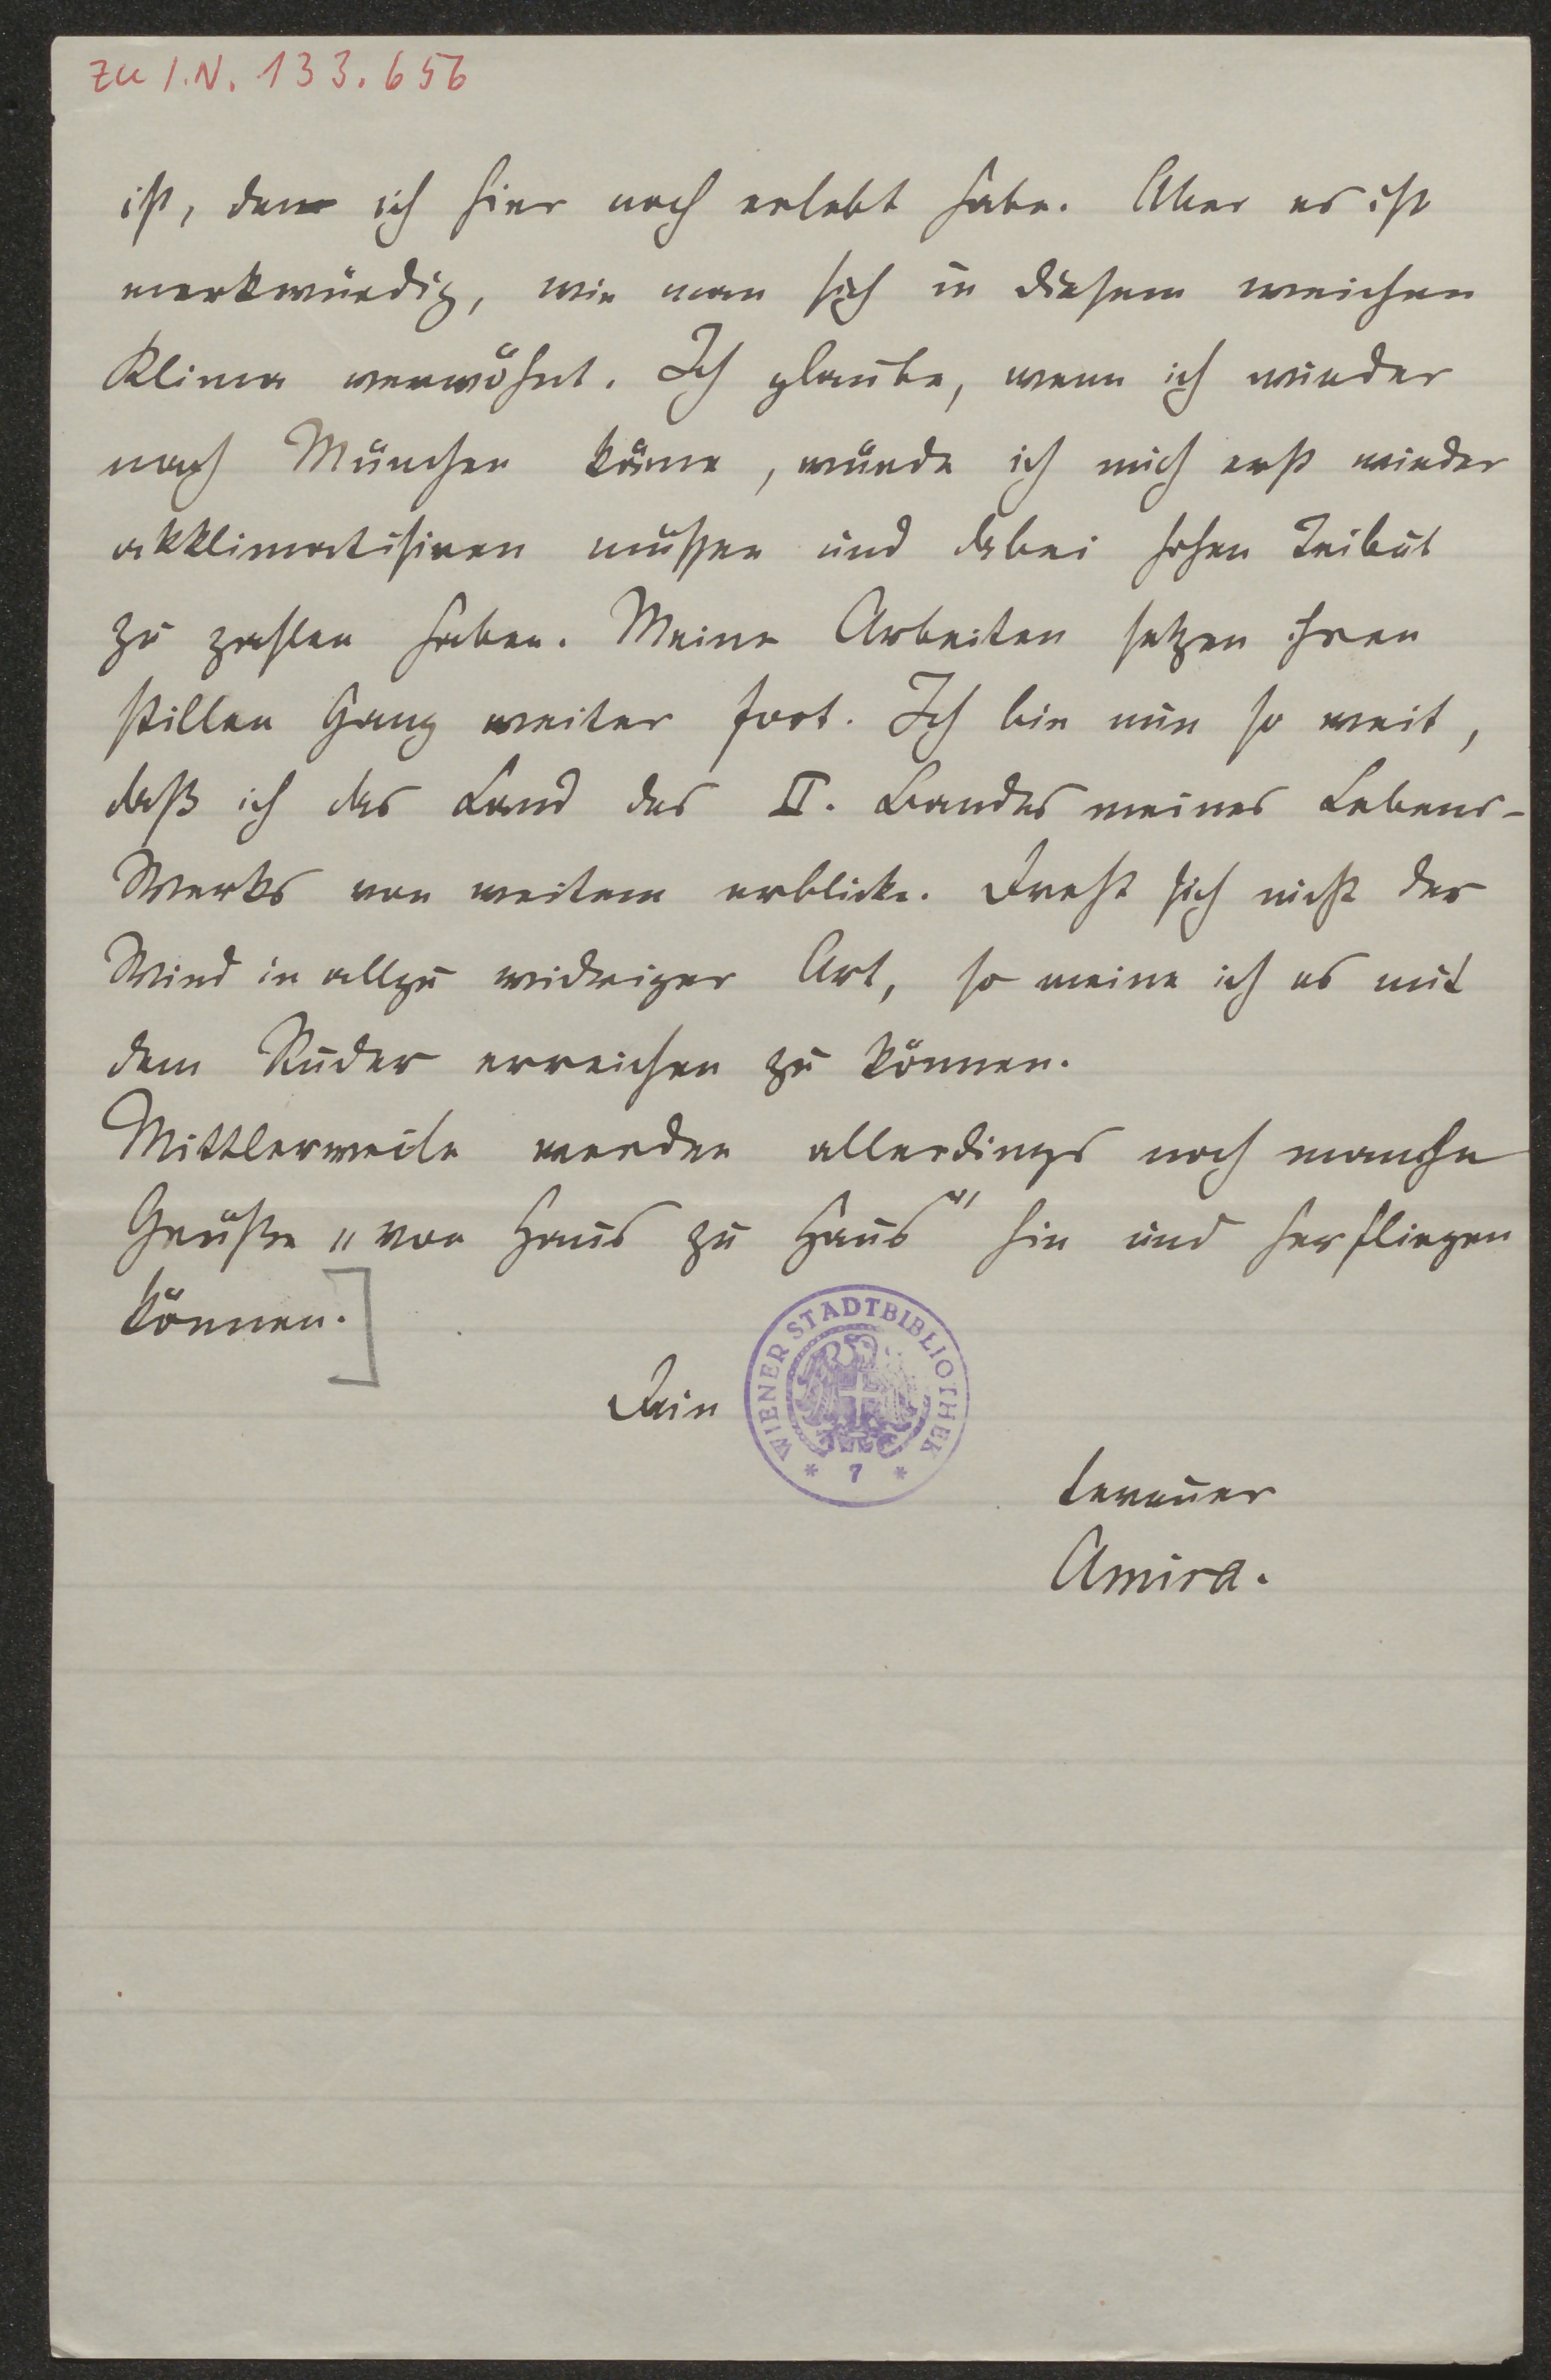 zu I.N. 133.656
ist, den ich hier noch erlebt habe. Aber es ist
merkwürdig, wie man sich in diesem weichen
Klima verwöhnt. Ich glaube, wenn ich wieder
nach München käme, würde ich mich erst wieder
akklimatisiren müssen und dabei hohen Tribut
zu zahlen haben. Meine Arbeiten setzen ihren
stillen Gang weiter fort. Ich bin nun so weit,
daß ich das Land des II. Bandes meines Lebens-
Werks von weitem erblicke. Dreht sich nicht der
Wind in allzu widriger Art, so meine ich es mit
dem Ruder erreichen zu können.
Mittlerweile werden allerdings noch manche
Grüße „von Haus zu Haus" hin und herfliegen
können.]
Dein
WIENER STADTBIBLIOTHEK
* 7 *
treuer
Amira.